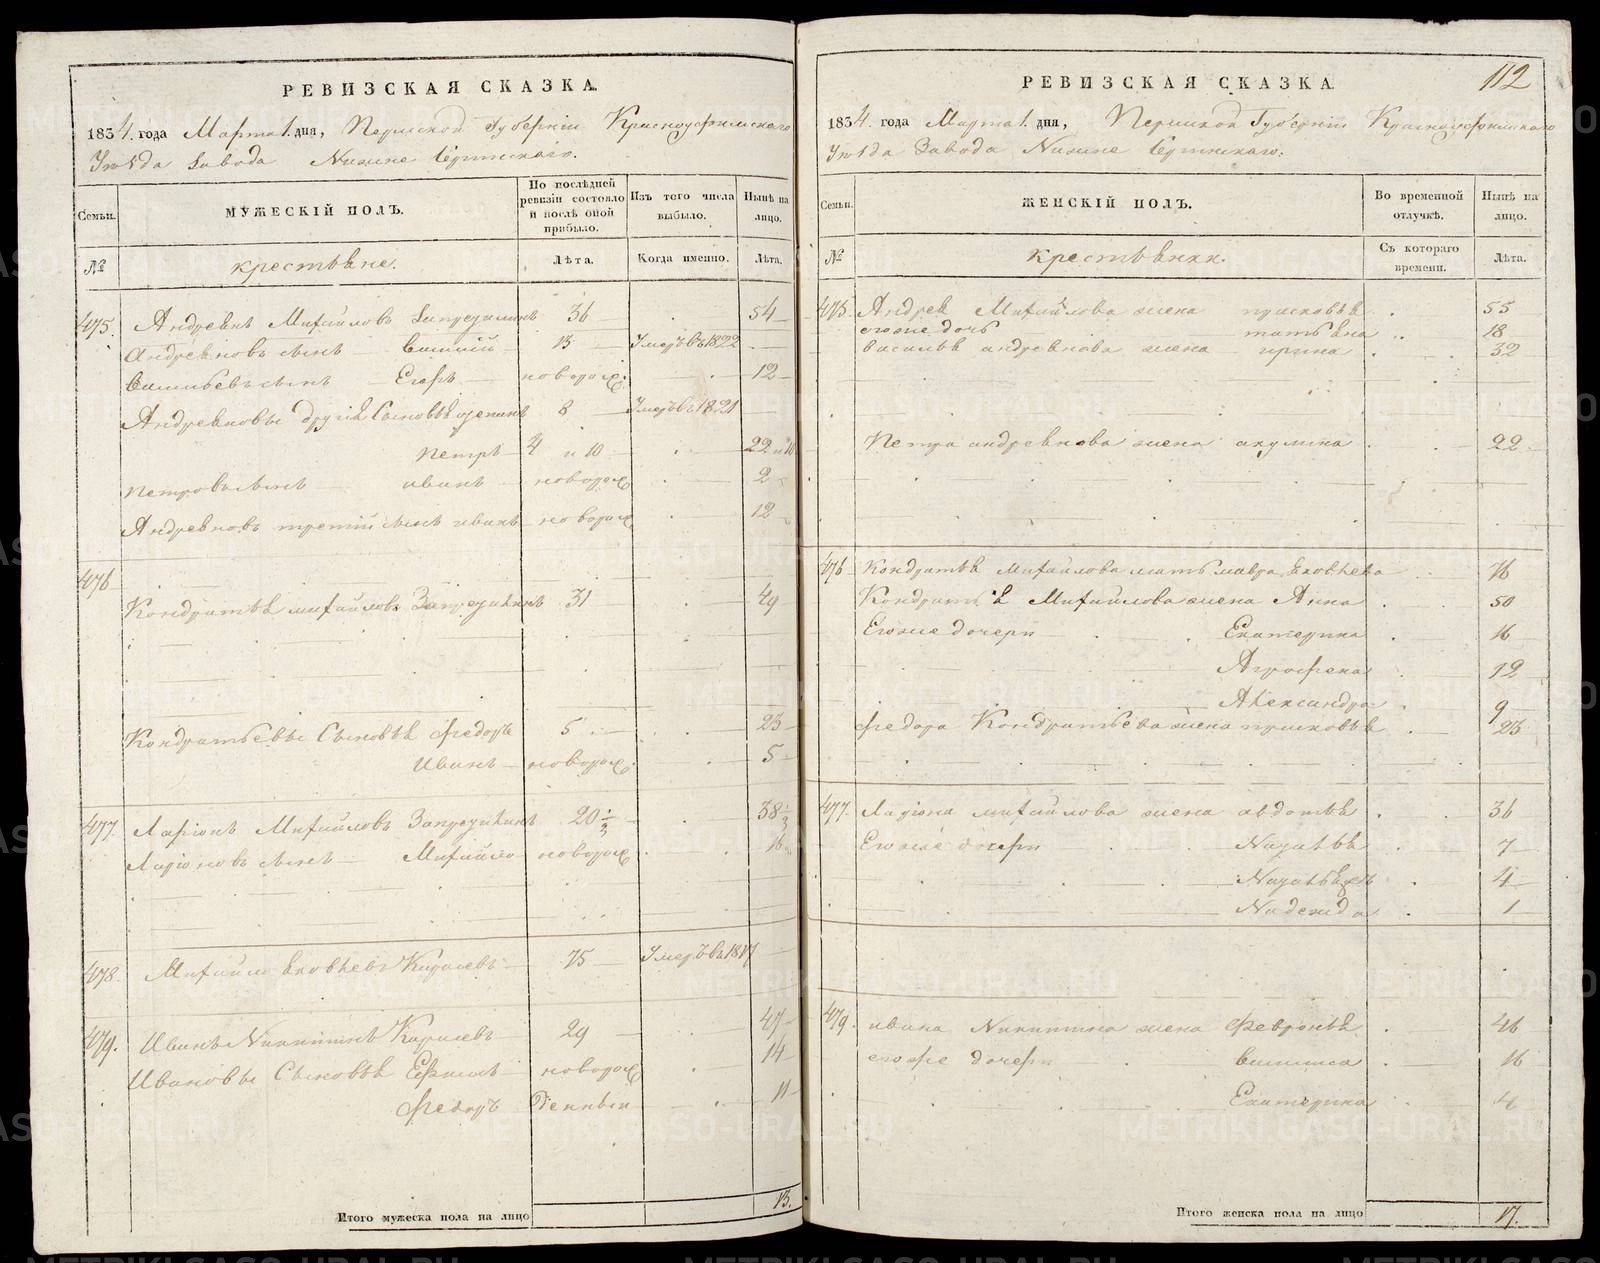 РЕВИЗСКАЯ СКАЗКА.
1834. года Марта 1. дня, Пермской Губерніи Красноуфимскаго
Уѣзда Завода Нижне Сергинскаго.
Семьи.
МУЖЕСКІЙ ПОЛЪ.
По послѣдней ревизіи состояло и послѣ оной прибыло.
Изъ того числа выбыло.
Нынѣ на лицо.
№
крестьѣне.
Лѣта.
Когда именно.
Лѣта.
475. Андреѣнъ Михайловъ 36 54
Андреѣновъ сынъ Василій 13 Умеръ въ 1822
Васильевъ сынъ Егоръ новорож. 12
Андреѣновы другіе Сыновьѣ 8 Умеръ въ 1821
Петръ 4 и 10 22 и 10
Петровъ сынъ иванъ новорож 2
Андреѣновъ третій сынъ иванъ новорож 12
476
Кондратьѣ михайловъ 31 49
Кондратьевы Сыновьѣ Федоръ 5 23
Иванъ новорож. 5
477. Ларіонъ Михайловъ 20 1/2 38 1/2
Ларіоновъ сынъ Михайло новорож 16
478. Михайло Яковлевъ Кирилевъ 75 Умеръ въ 1817
479. Иванъ Никитинъ Кирилевъ 29 47
Ивановы Сыновьѣ Ефимъ новорож 14
Федоръ 11
Итого мужеска пола на лицо 13.
112
РЕВИЗСКАЯ СКАЗКА
1834. года Марта 1. дня, Пермской Губерніи Красноуфимскаго
Уѣзда Завода Нижне Сергинскаго.
Семьи.
ЖЕНСКІЙ ПОЛЪ.
Во временной отлучкѣ.
Нынѣ на лицо.
№
крестьѣнки.
Съ котораго времени.
Лѣта.
475. Андреѣ Михайлова жена прасковьѣ 55
егоже дочь татьѣна 18
Васильѣ андреѣнова жена ирина 32
Петра андреѣнова жена акулина 22
476 Кондратьѣ Михайлова мать мавра Яковлева 76
Кондратьѣ Михайлова жена Анна 50
Егоже дочери Екатерина 16
Агрофена 12
Александра 9
Федора Кондратьева жена прасковьѣ 23
477. Ларіона михайлова жена авдотьѣ 36
Егоже дочери Наталѣѣ 7
4
Надежда 1
479. ивана Никитина жена Февроньѣ 46
егоже дочери Василиса 16
Екатерина 4
Итого женска пола на лицо 17.
METRIKI.GASO-URAL.RU